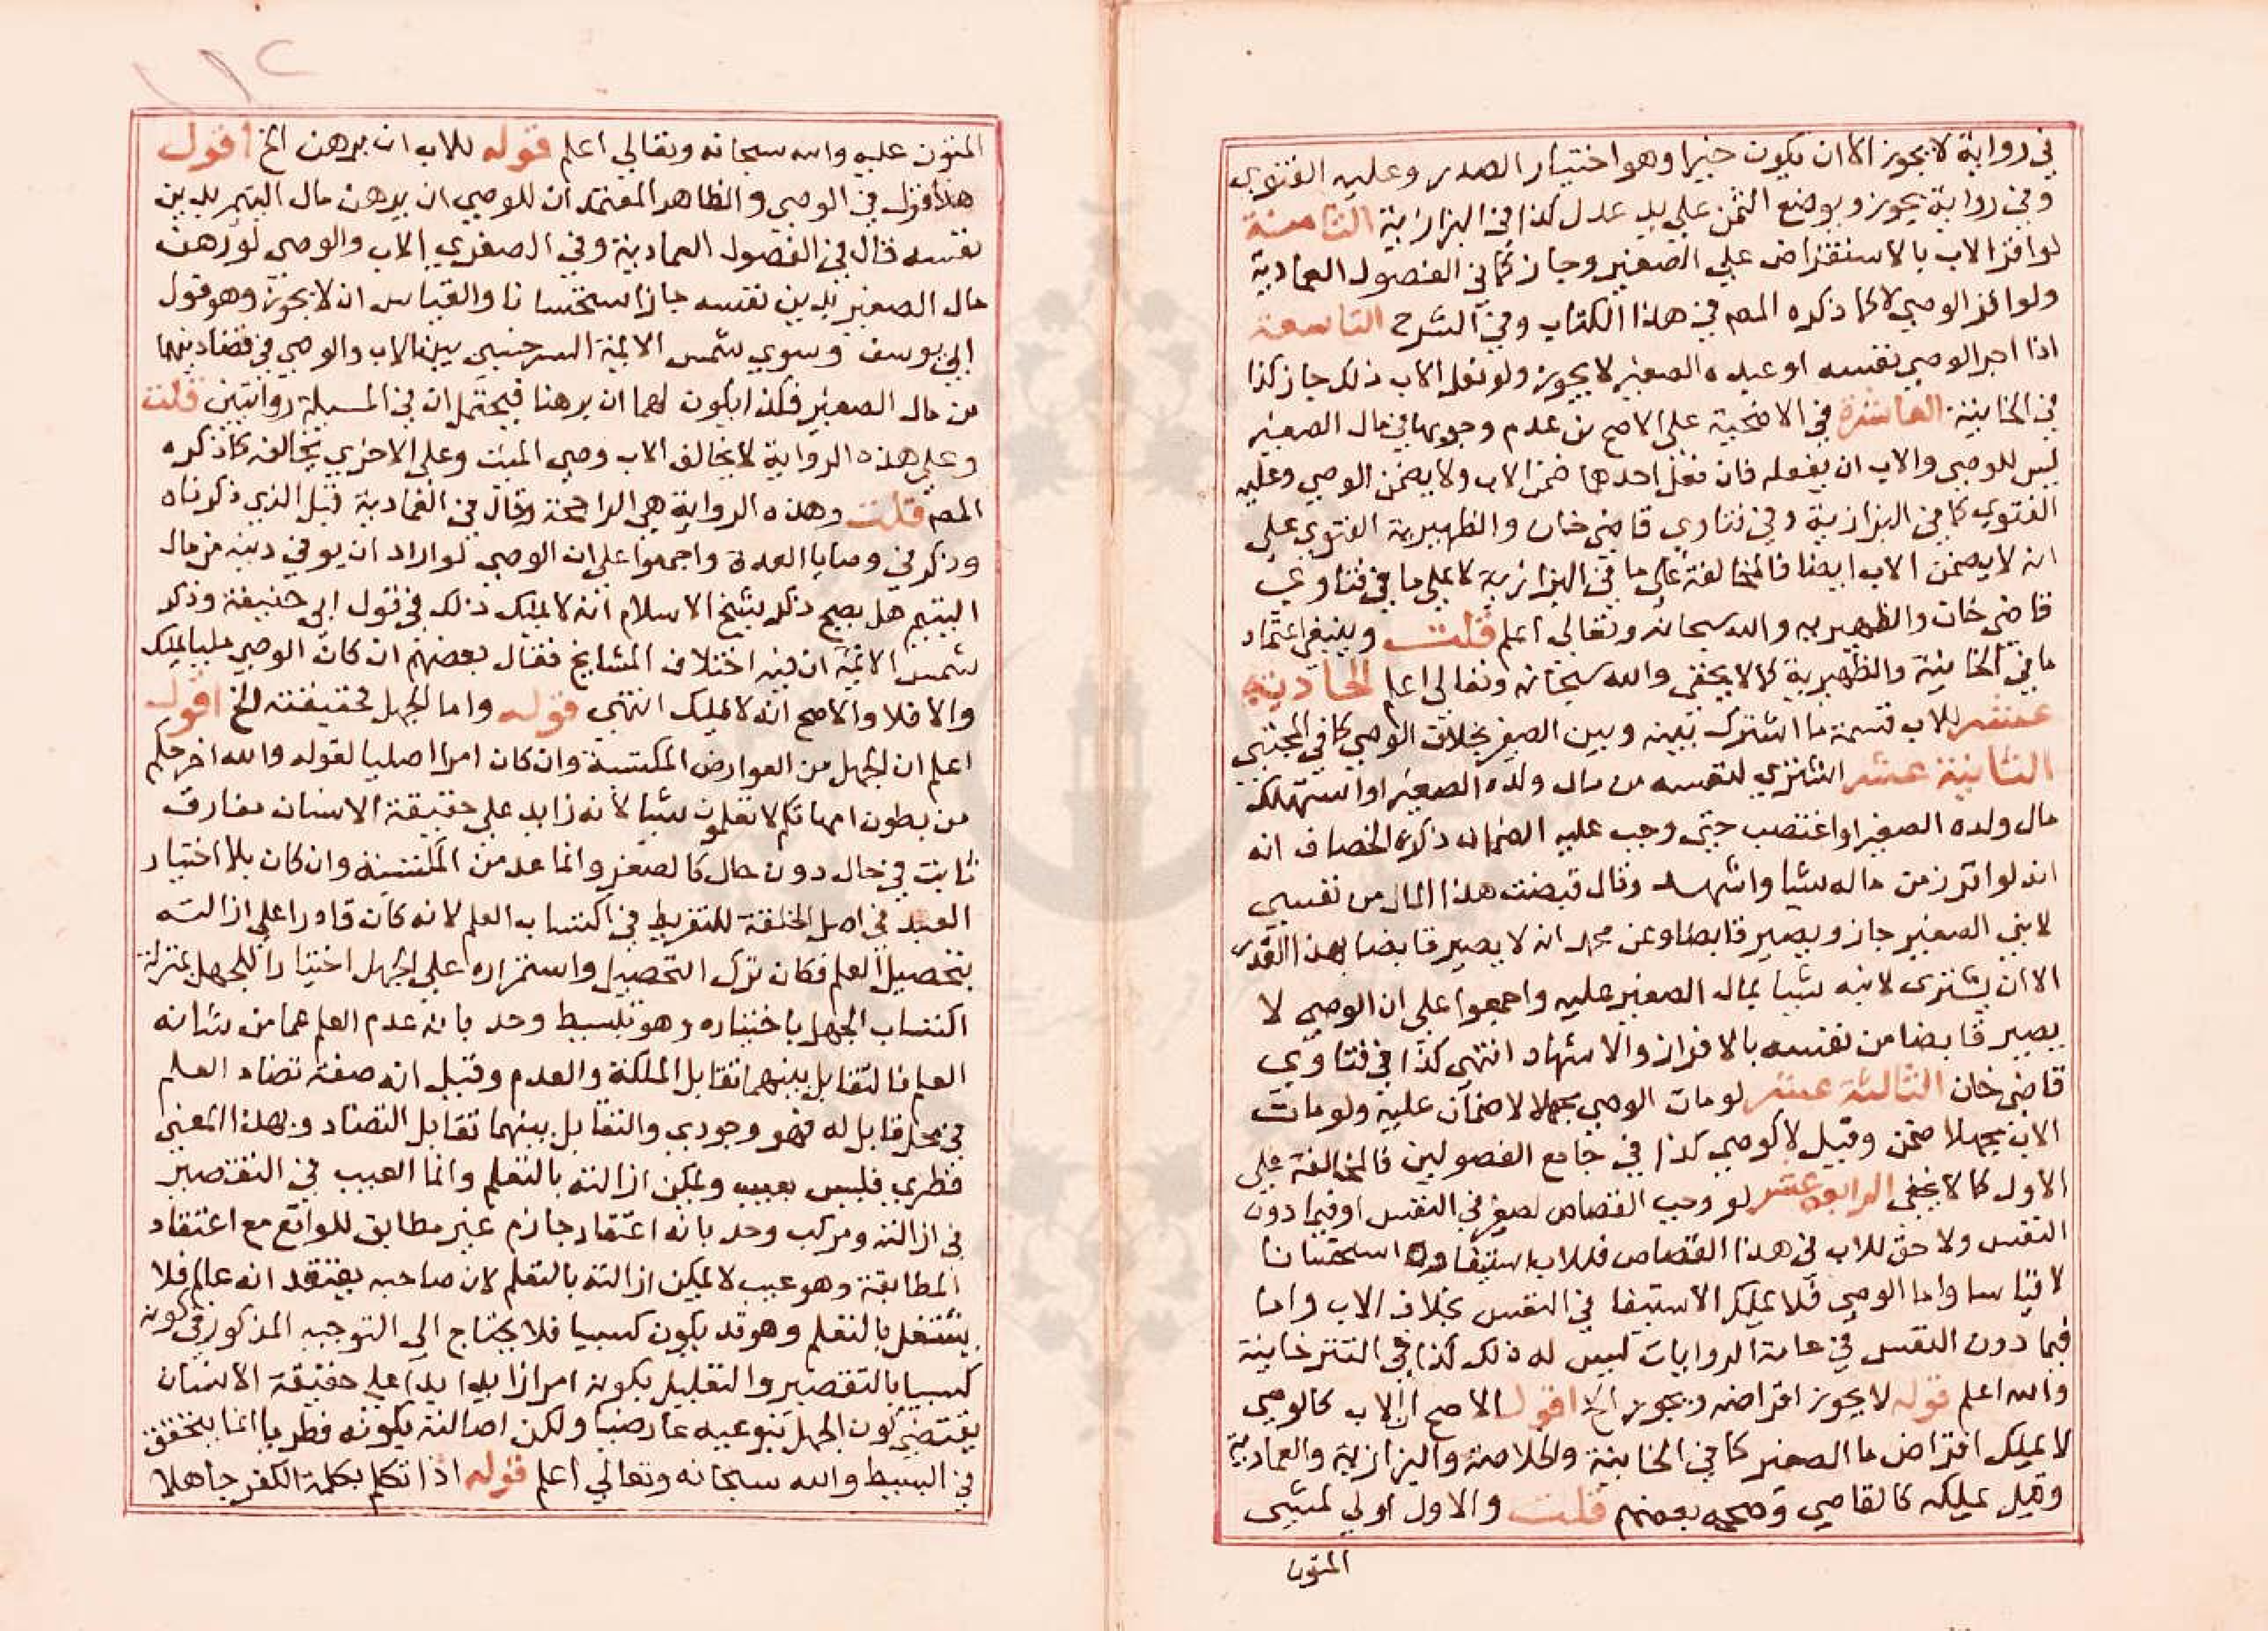 في رواية لا يجوز الا ان يكون خيرا وهو اختيار الصدر وعليه الفتوي
وفي رواية يجوز ويوضع الثمن علي يد عدل كذا في البزازية الثامنة
لو اقر الاب بالاستقراض علي الصغير وجاز كما في الفصول العمادية
ولو اقر الوصي لا كما ذكره المص في هذا الكتاب وفي الشرح التاسعة
اذا اجر الوصي نفسه او عبده الصغير لا يجوز ولو فعل الاب ذلك جاز كذا
في الخانية العاشرة في الاضحية علي الاصح من عدم وجوبها في مال الصغير
ليس للوصي والاب ان يفعله فان فعل احدهما ضمن الاب ولا يضمن الوصي وعليه
الفتوي كما في البزازية وفي فتاوي قاضي خان والظهيرية الفتوي علي
انه لا يضمن الاب ايضا فالمخالفة علي ما في البزازية لا علي ما في فتاوي
قاضي خان والظهيرية والله سبحانه وتعالي اعلم قلت وينبغي اعتماد
ما في الخانية والظهيرية كما لا يخفي والله سبحانه وتعالي اعلم الحادية
عشر للاب قسمة ما اشترك بينه وبين الصغير بخلاف الوصي كما في المجتبي
الثانية عشر اشتري لنفسه من مال ولده الصغير او استهلك
مال ولده الصغير او اغتصب حتي وجب عليه الضمان ذكره الخصاف انه
انه لو افرز من ماله شيا واشهد وقال قبضت هذا المال من نفسي
لابني الصغير جاز ويصير قابضا وعن محمد انه لا يصير قابضا بهذا القدر
الا ان يشتري لابنه شيا بمال الصغير عليه واجمعوا علي ان الوصي لا
يصير قابضا من نفسه بالافراز والاشهاد انتهي كذا في فتاوي
قاضي خان الثالثة عشر لو مات الوصي مجهلا لا ضمان عليه ولو مات
الاب مجهلا ضمن وقيل لا كوصي كذا في جامع الفصولين فالمخالفة علي
الاول كما لا يخفي الرابعة عشر لو وجب القصاص لصغير في النفس او فيما دون
النفس ولا حق للاب في هذا القصاص فللاب استيفاوه استحسانا
لا قياسا واما الوصي فلا يملك الاستيفا في النفس بخلاف الاب واما
فيما دون النفس في عامة الروايات ليس له ذلك كذا في التترخانية
والله اعلم قوله لا يجوز اقراضه ويجوز الخ اقول الاصح ان الاب كالوصي
لا يملك اقراض ما الصغير كما في الخانية والخلاصة والبزازية والعمادية
وقيل يملكه كالقاضي وصححه بعضهم قلت والاول اولي لمشي
المتون
المتون عليه والله سبحانه وتعالي اعلم قوله للاب ان يرهن الخ اقول
هذا قول في الوصي والظاهر المعتمد ان للوصي ان يرهن مال اليتيم بدين
نفسه قال في الفصول العمادية وفي الصغري الاب والوصي لو رهن
مال الصغير بدين نفسه جاز استحسانا والقياس ان لا يجوز وهو قول
ابي يوسف وسوي شمس الائمة السرخسي بين الاب والوصي في قضا دينهما
من مال الصغير فكذا يكون لهما ان يرهنا فيحتمل ان في المسيلة روايتين قلت
وعلي هذه الرواية لا يخالف الاب وصي الميت وعلي الاخري يخالفه كما ذكره
المص قلت وهذه الرواية هي الراجحة وقال في العمادية قبل الذي ذكرناه
وذكر في وصايا العدة واجمعوا علي ان الوصي لو اراد ان يوفي دينه من مال
اليتيم هل يصح ذكر شيخ الاسلام انه لا يملك ذلك في قول ابي حنيفة وذكر
شمس الائمة ان فيه اختلاف المشايخ فقال بعضهم ان كان الوصي مليا يملك
والا فلا والاصح انه لا يملك انتهي قوله واما الجهل فحقيقته الخ اقول
اعلم ان الجهل من العوارض المكتسبة وان كان امرا اصليا لقوله والله اخرجكم
من بطون امهاتكم لا تعلمون شيا لانه زايد علي حقيقة الانسان مفارق
ثابت في حال دون حال كالصغر وانما عد من المكتسبة وان كان بلا اختيار
العبد في اصل الخلقة للتفريط في اكتساب العلم لانه كان قادرا علي ازالته
بتحصيل العلم فكان ترك التحصيل واستمراره علي الجهل اختيارا للجهل بمنزلة
اكتساب الجهل باختياره وهو بسيط وحد بانه عدم العلم عما من شانه
العلم فالتقابل بينهما تقابل الملكة والعدم وقيل انه صفة تضاد العلم
في محل قابل له فهو وجودي والتقابل بينهما تقابل التضاد وبهذا المعني
فطري فليس بعيب ويمكن ازالته بالتعلم وانما العيب في التقصير
في ازالته ومركب وحد بانه اعتقاد جازم غير مطابق للواقع مع اعتقاد
المطابقة وهو عيب لا يمكن ازالته بالتعلم لان صاحبه يعتقد انه عالم فلا
يشتغل بالتعلم وهو قد يكون كسبيا فلا يحتاج الي التوجيه المذكور في كونه
كسبيا بالتقصير والتعليل بكونه امرا زايدا علي حقيقة الانسان
يقتضي كون الجهل بنوعيه عارضيا ولكن اصالته بكونه فطريا انما يتحقق
في البسيط والله سبحانه وتعالي اعلم قوله اذا تكلم بكلمة الكفر جاهلا